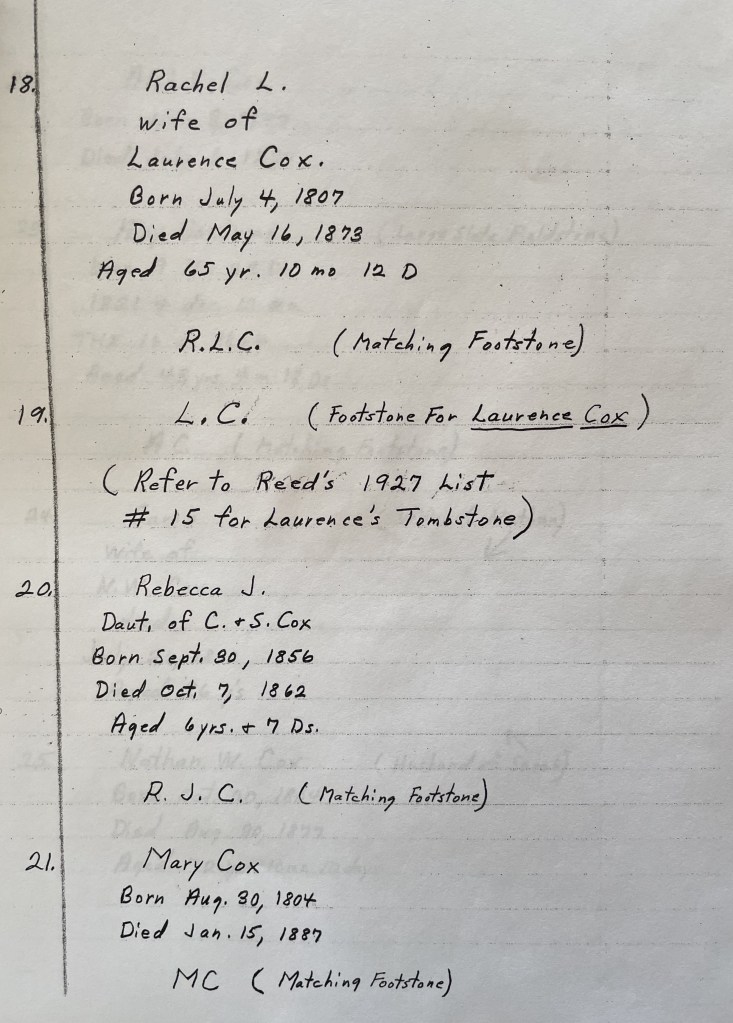 18. Rachel L.
wife of
Laurence Cox.
Born July 4, 1807
Died May 16, 1873
Aged 65 yr. 10 mo 12 D
R.L.C. (Matching Footstone)
19. L.C. (Footstone For Laurence Cox)
(Refer to Reed's 1927 List
# 15 for Laurence's Tombstone)
20. Rebecca J.
Daut. of C. + S. Cox
Born Sept. 30, 1856
Died Oct. 7, 1862
Aged 6 yrs. + 7 Ds.
R. J. C. (Matching Footstone)
21. Mary Cox
Born Aug. 30, 1804
Died Jan. 15, 1887
MC (Matching Footstone)